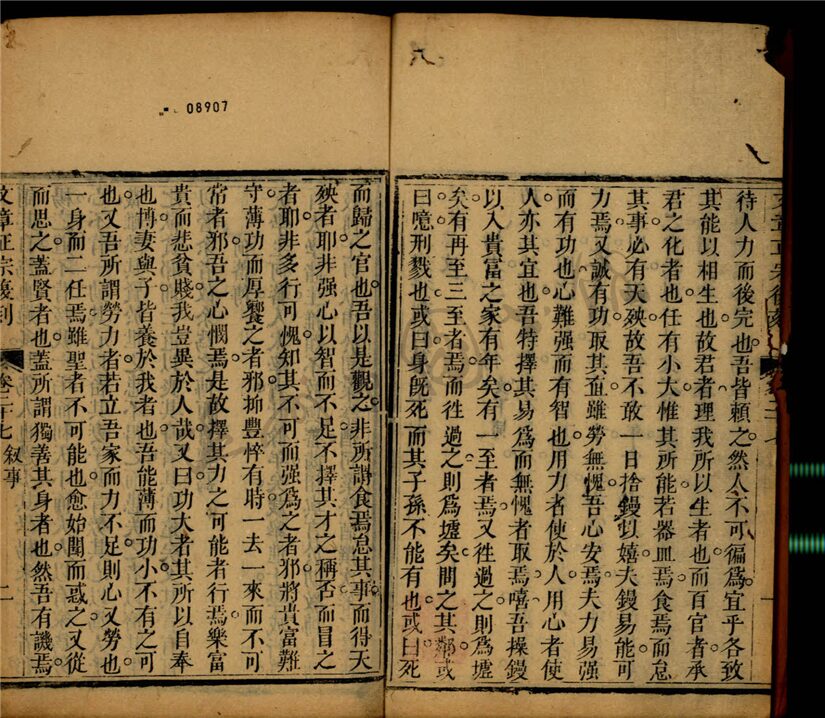 08907
待人力而後完也吾皆賴之然人不可徧為宜乎各致
其能以相生也故君者理我所以生者也而百官者承
君之化者也任有小大惟其所能若器皿焉食焉而怠
其事必有天殃故吾不敢一日捨鏝以嬉夫鏝易能可
力焉又誠有功取其直雖勞無愧吾心安焉夫力易强
而有功也心難强而有智也用力者使於人用心者使
人亦其宜也吾特擇其易為而無愧者取焉嘻吾操鏝
以入貴富之家有年矣有一至者焉又徃過之則為墟
矣有再至三至者焉而徃過之則為墟矣問之其鄰或
曰噫刑戮也或曰身旣死而其子孫不能有也或曰死
而歸之官也吾以是觀之非所謂食焉怠其事而得天
殃者耶非强心以智而不足不擇其才之稱否而冒之
者耶非多行可愧知其不可而强為之者邪將貴富難
守薄功而厚饗之者邪抑豐悴有時一去一來而不可
常者邪吾之心憫焉是故擇其力之可能者行焉樂富
貴而悲貧賤我豈異於人哉又曰功大者其所以自奉
也博妻與子皆養於我者也吾能薄而功小不有之可
也又吾所謂勞力者若立吾家而力不足則心又勞也
一身而二任焉雖聖者不可能也愈始聞而惑之又從
而思之蓋賢者也蓋所謂獨善其身者也然吾有譏焉
文章正宗復刻 卷二十七 叙事 二